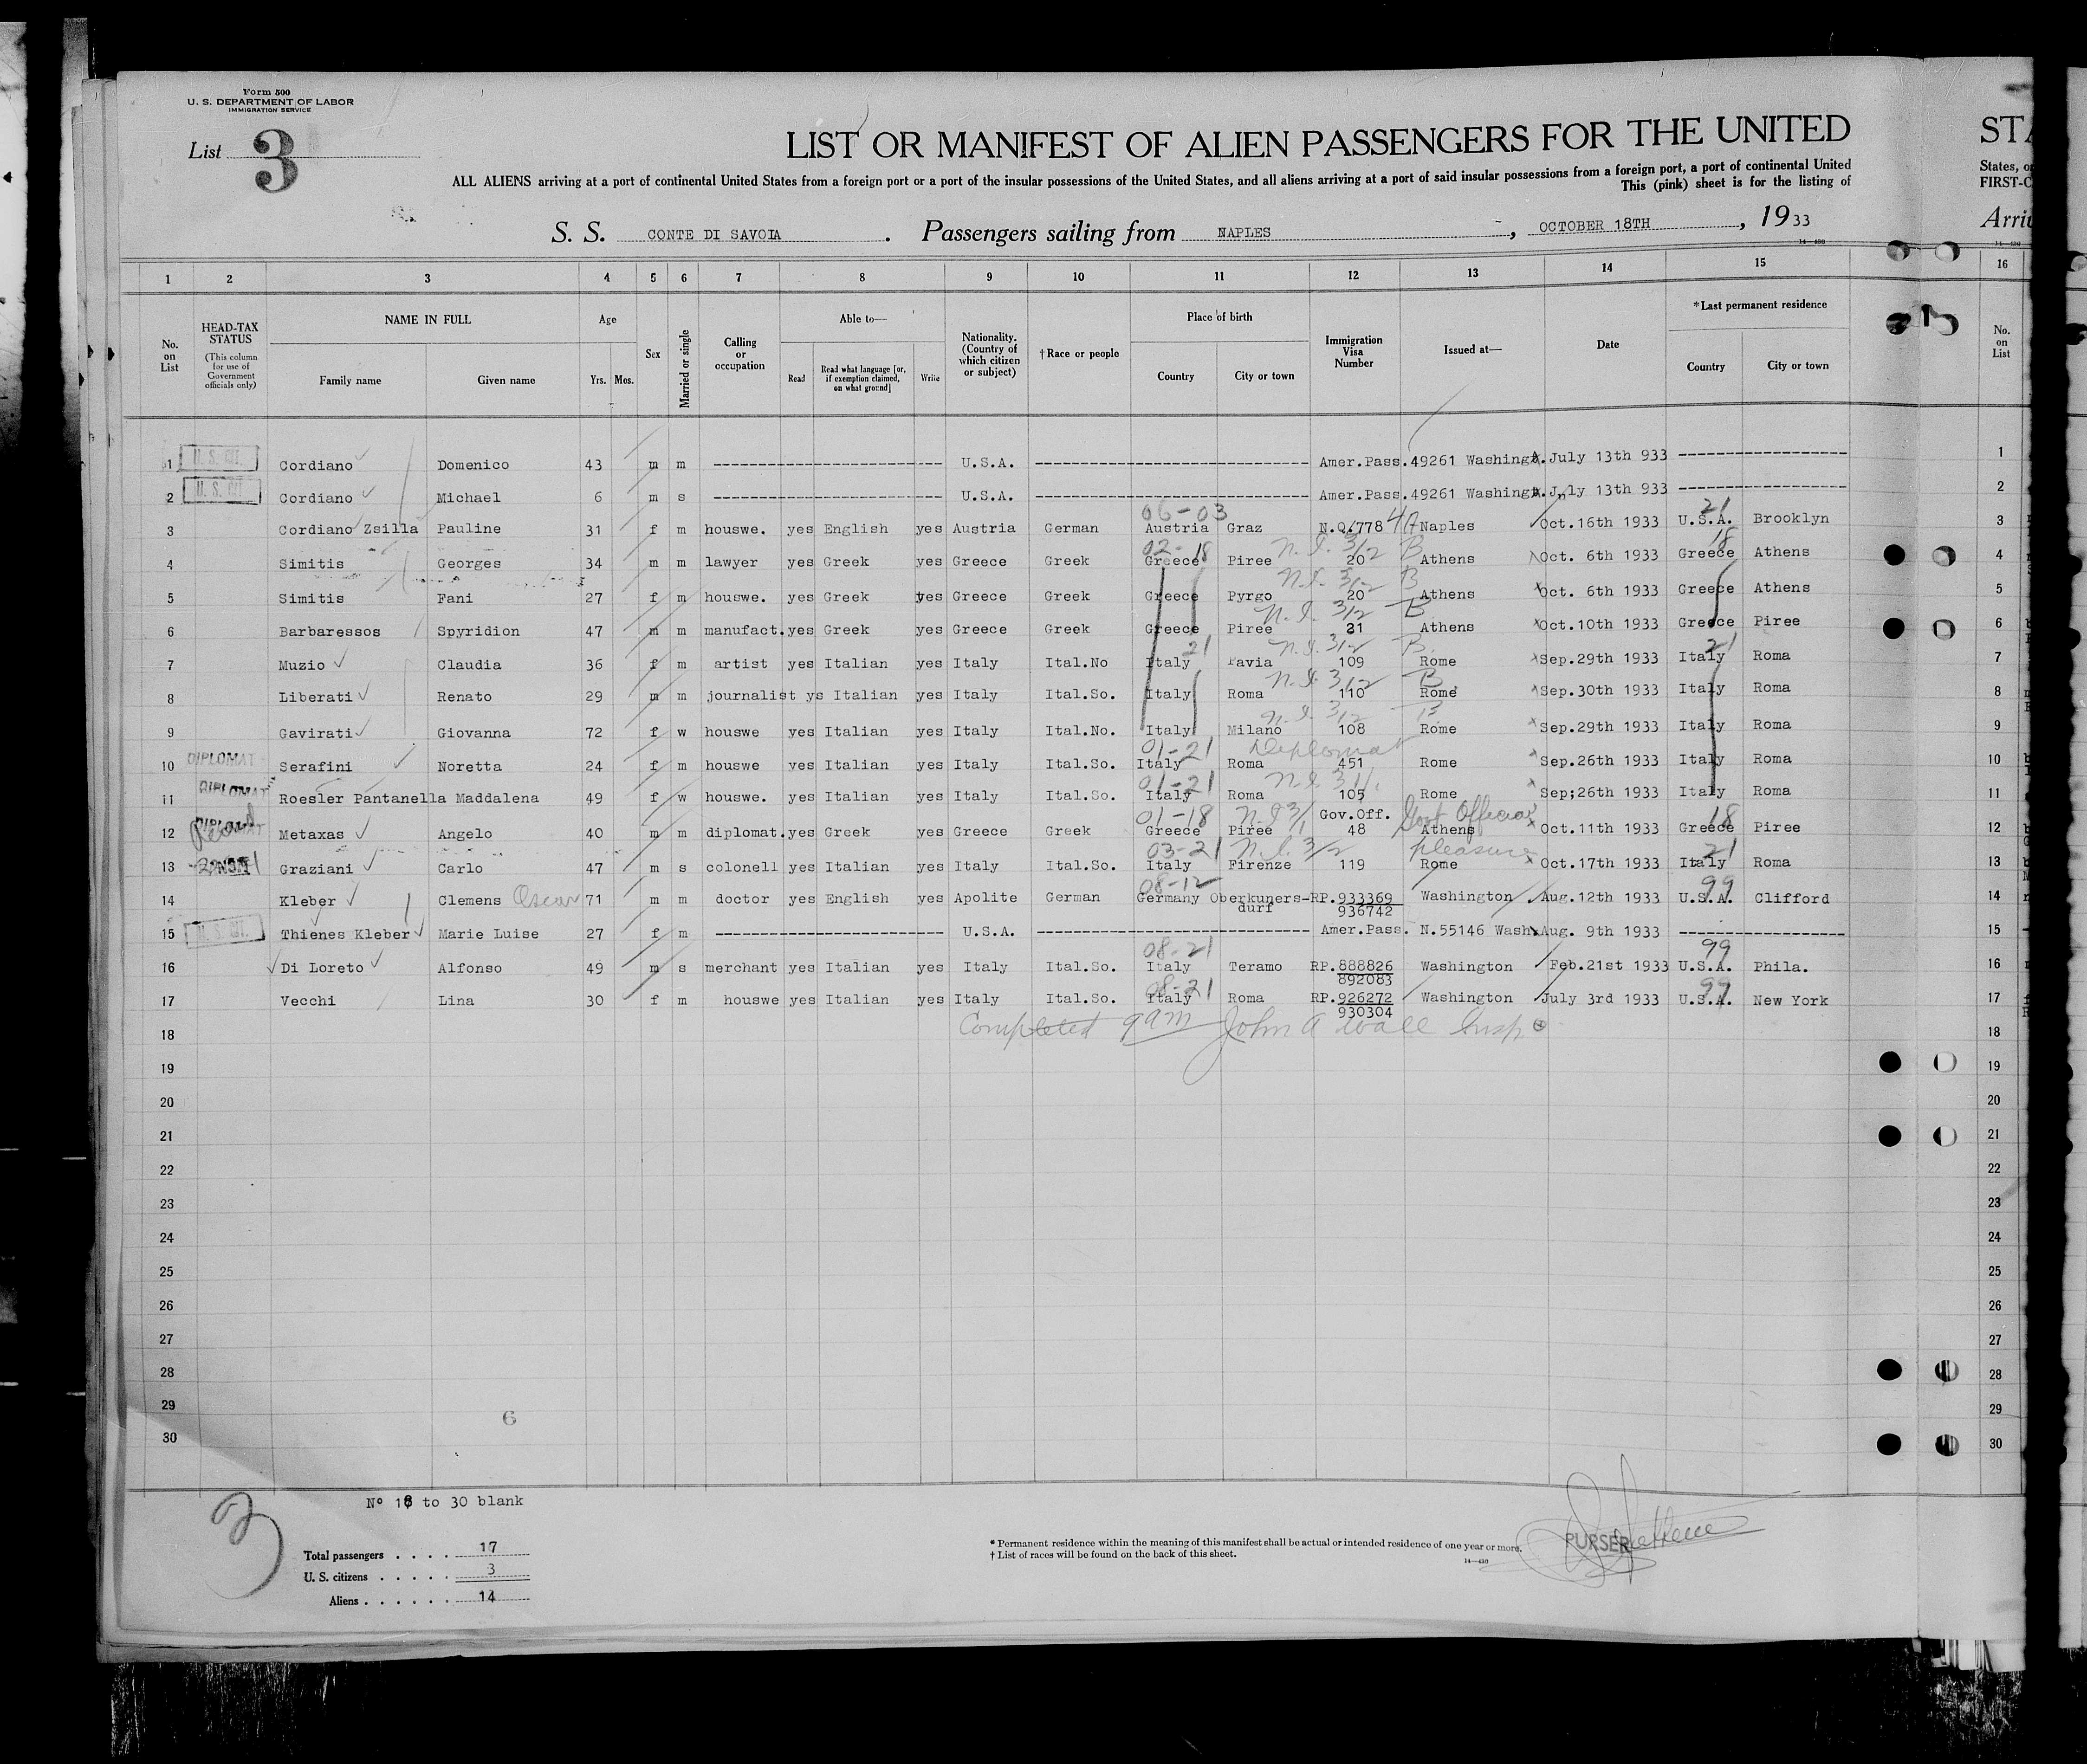 Form 500
U. S. DEPARTMENT OF LABOR
IMMIGRATION SERVICE
List 3
LIST OR MANIFEST OF ALIEN PASSENGERS FOR THE UNITED
STA
ALL ALIENS arriving at a port of continental United States from a foreign port or a port of the insular possessions of the United States, and all aliens arriving at a port of said insular possessions from a foreign port, a port of continental United
States, or
This (pink) sheet is for the listing of
FIRST-C
S. S. CONTE DI SAVOIA. Passengers sailing from NAPLES, OCTOBER 18TH, 1933
Arri
1 2 3 4 5 6 7 8 9 10 11 12 13 14 15 16
No. on List
HEAD-TAX STATUS (This column for use of Government officials only)
NAME IN FULL Family name Given name
Age Yrs. Mos.
Sex
Married or single
Calling or occupation
Able to— Read Read what language [or, if exemption claimed, on what ground] Write
Nationality. (Country of which citizen or subject)
† Race or people
Place of birth Country City or town
Immigration Visa Number
Issued at—
Date
*Last permanent residence Country City or town
No. on List
1 U. S. CIT. Cordiano Domenico 43 m m U.S.A. Amer.Pass.49261 Washingt. July 13th 933 1
2 U. S. CIT. Cordiano Michael 6 m s U.S.A. Amer.Pass.49261 Washingt. July 13th 933 2
06-03 21
3 Cordiano Zsilla Pauline 31 f m houswe. yes English yes Austria German Austria Graz N.Q.778 4A Naples Oct.16th 1933 U.S.A. Brooklyn 3
02-18 N.I. 3/2 B 18
4 Simitis Georges 34 m m lawyer yes Greek yes Greece Greek Greece Piree 20 Athens Oct. 6th 1933 Greece Athens 4
N.I. 3/2 B
5 Simitis Fani 27 f m houswe. yes Greek yes Greece Greek Greece Pyrgo 20 Athens Oct. 6th 1933 Greece Athens 5
N.I. 3/2 B
6 Barbaressos Spyridion 47 m m manufact. yes Greek yes Greece Greek Greece Piree 21 Athens Oct.10th 1933 Greece Piree 6
21 N.I. 3/2 B. 21
7 Muzio Claudia 36 f m artist yes Italian yes Italy Ital.No Italy Pavia 109 Rome Sep.29th 1933 Italy Roma 7
N.I. 3/2 B
8 Liberati Renato 29 m m journalist ys Italian yes Italy Ital.So. Italy Roma 110 Rome Sep.30th 1933 Italy Roma 8
N.I. 3/2 B
9 Gavirati Giovanna 72 f w houswe yes Italian yes Italy Ital.No. Italy Milano 108 Rome Sep.29th 1933 Italy Roma 9
DIPLOMAT 01-21 Diplomat
10 Serafini Noretta 24 f m houswe yes Italian yes Italy Ital.So. Italy Roma 451 Rome Sep.26th 1933 Italy Roma 10
DIPLOMAT 01-21 N.I. 3/1.
11 Roesler Pantanella Maddalena 49 f w houswe. yes Italian yes Italy Ital.So. Italy Roma 105 Rome Sep;26th 1933 Italy Roma 11
DIPLOMAT 01-18 N.I 3/1 Gov.Off. Govt Official 18
12 Metaxas Angelo 40 m m diplomat. yes Greek yes Greece Greek Greece Piree 48 Athens Oct.11th 1933 Greece Piree 12
03-21 N.I. 3/2 pleasure 21
13 Graziani Carlo 47 m s colonell yes Italian yes Italy Ital.So. Italy Firenze 119 Rome Oct.17th 1933 Italy Roma 13
08-12 99
14 Kleber Clemens Oscar 71 m m doctor yes English yes Apolite German Germany Oberkuners-durf RP.933369 936742 Washington Aug.12th 1933 U.S.A. Clifford 14
15 U. S. CIT. Thienes Kleber Marie Luise 27 f m U.S.A. Amer.Pass. N.55146 Wash. Aug. 9th 1933 15
08-21 99
16 Di Loreto Alfonso 49 m s merchant yes Italian yes Italy Ital.So. Italy Teramo RP.888826 892083 Washington Feb.21st 1933 U.S.A. Phila. 16
08-21 99
17 Vecchi Lina 30 f m houswe yes Italian yes Italy Ital.So. Italy Roma RP.926272 930304 Washington July 3rd 1933 U.S.A. New York 17
18 Completed 9am John A Wall Insp. 18
19 19
20 20
21 21
22 22
23 23
24 24
25 25
26 26
27 27
28 28
29 6 29
30 30
3
Nº 18 to 30 blank
Total passengers . . . . 17
U. S. citizens . . . . . 3
Aliens . . . . . . 14
* Permanent residence within the meaning of this manifest shall be actual or intended residence of one year or more.
† List of races will be found on the back of this sheet.
14—430
PURSER